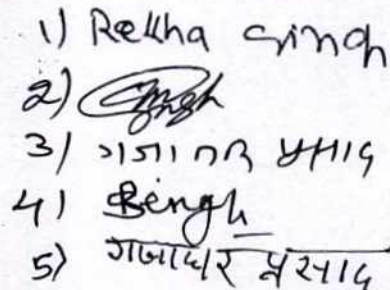 1) Rekha Singh
2) Singh
3) गजाधर प्रसाद
4) Singh
5) गजाधर प्रसाद